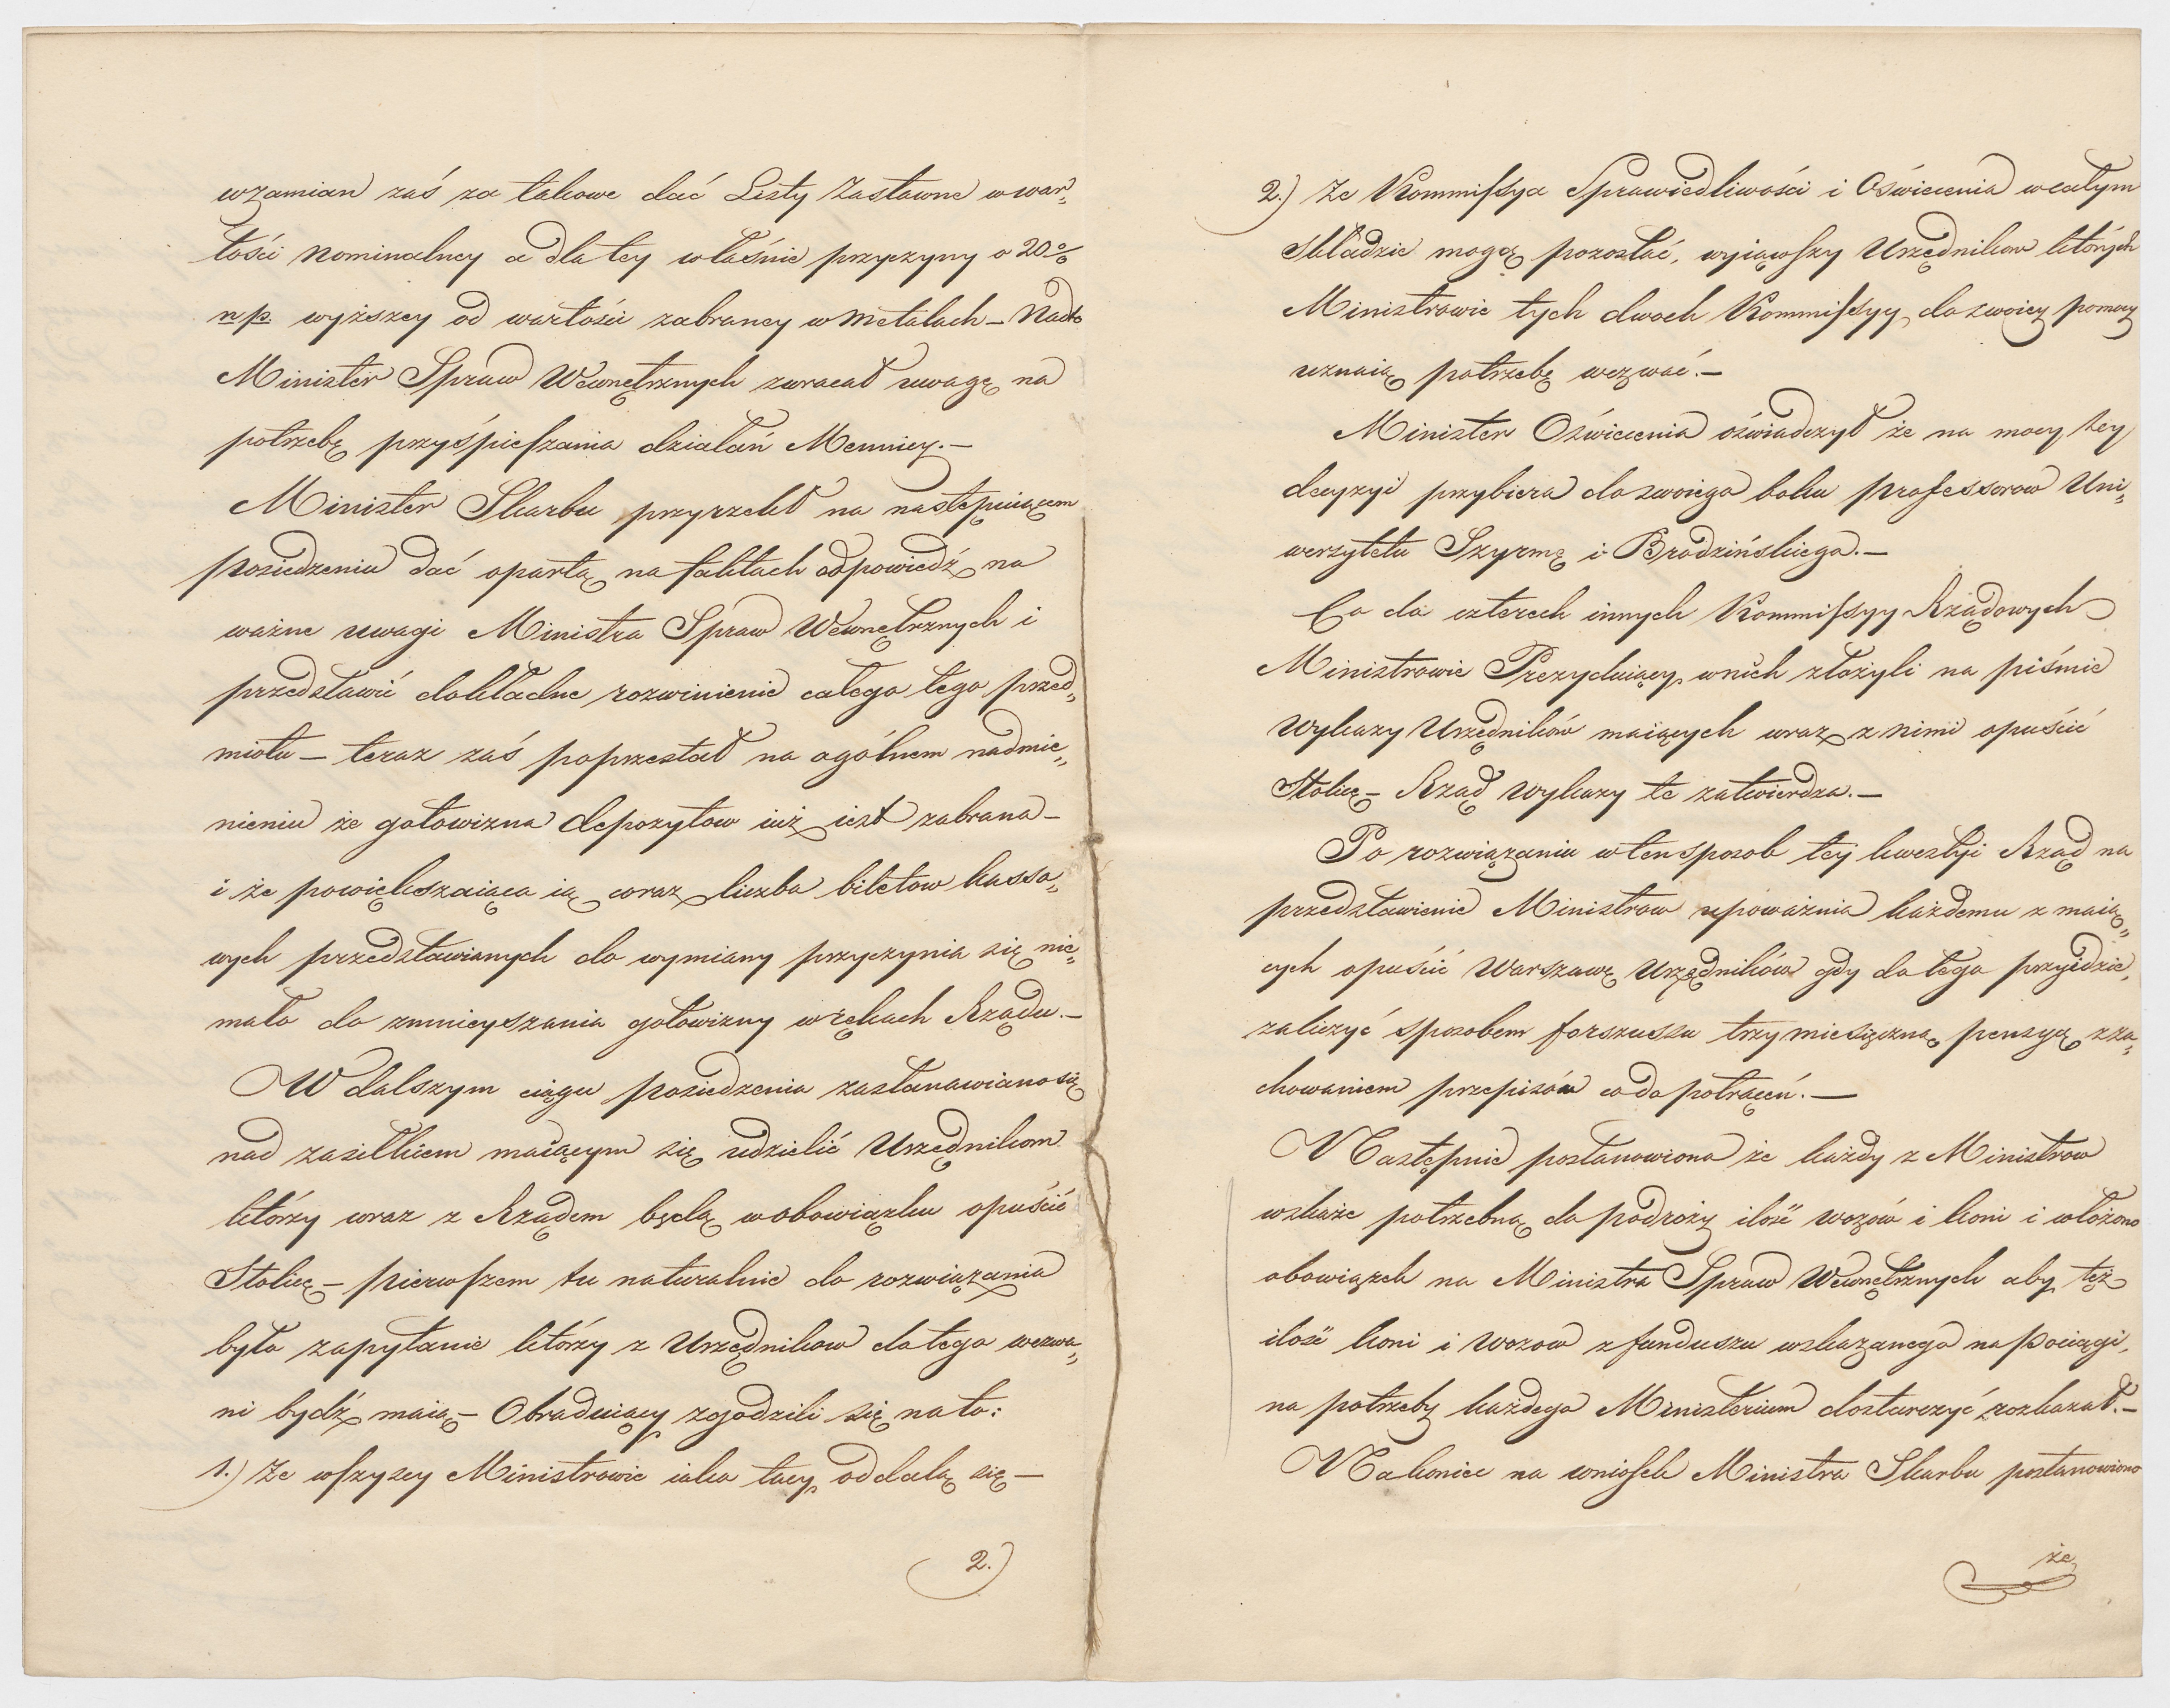 wzamian zaś za takowe dać Listy Zastawne w war„
tości nominalney a dla tey właśnie przyczyny o 20%
np. wyższey od wartości zabraney w metalach – Nadto
Minister Spraw Wewnętrznych zwracał uwagę na
potrzebę przyśpieszania działań Mennicy. –
Minister Skarbu przyrzekł na następuiącem
posiedzeniu dać opartą na faktach odpowiedź na
ważne uwagi Ministra Spraw Wewnętrznych i
przedstawić dokładne rozwinienie całego tego przed„
miotu – teraz zaś poprzestał na ogólnem nadmie„
nieniu że gotowizna depozytow iuż iest zabrana –
i że powiększaiąca ią coraz liczba biletow kasso„
wych przedstawianych do wymiany przyczynia się nie„
mało do zmnieyszania gotowizny w rękach Rządu. –
W dalszym ciągu posiedzenia zastanawiano się
nad zasiłkiem maiącym się udzielić Urzędnikom
którzy wraz z Rządem będą w obowiązku opuścić
Stolicę – pierwszem tu naturalnie do rozwiązania
było zapytanie którzy z Urzędnikow do tego wezwa„
ni bydź maią – Obraduiący zgodzili się na to:
1.) Że wszyscy Ministrowie iako tacy oddalą się –
2.)
2.) Że Kommissya Sprawiedliwości i Oświecenia w całym
składzie mogą pozostać, wyiąwszy Urzędnikow których
Ministrowie tych dwoch Kommissyy do swoiey pomocy
uznaią potrzebę wezwać. –
Minister Oświecenia oświadczył że na mocy tey
decyzyi przybiera do swoiego boku professorow Uni„
wersytetu Szyrmę i Brodzińskiego. –
Co do czterech innych Kommissyy Rządowych
Ministrowie Prezyduiący w nich złożyli na piśmie
wykazy Urzędników maiących wraz z nimi opuścić
Stolicę – Rząd wykazy te zatwierdza. –
Po rozwiązaniu w ten sposob tej kwestyi Rząd na
przedstawienie Ministrow upoważnia każdemu z maią„
cych opuścić Warszawę Urzędników gdy do tego przyidzie,
zaliczyć sposobem forszussu trzymiesięczną pensyą z za„
chowaniem przepisów co do potrąceń. –
Następnie postanowiono że każdy z Ministrow
wskaże potrzebną do podroży ilość wozów i koni i włożono
obowiązek na Ministra Spraw Wewnętrznych aby też
ilość koni i wozow z funduszu wskazanego na pociągi,
na potrzeby każdego Ministerium dostarczyć rozkazał. –
Nakoniec na wniosek Ministra Skarbu postanowiono
że